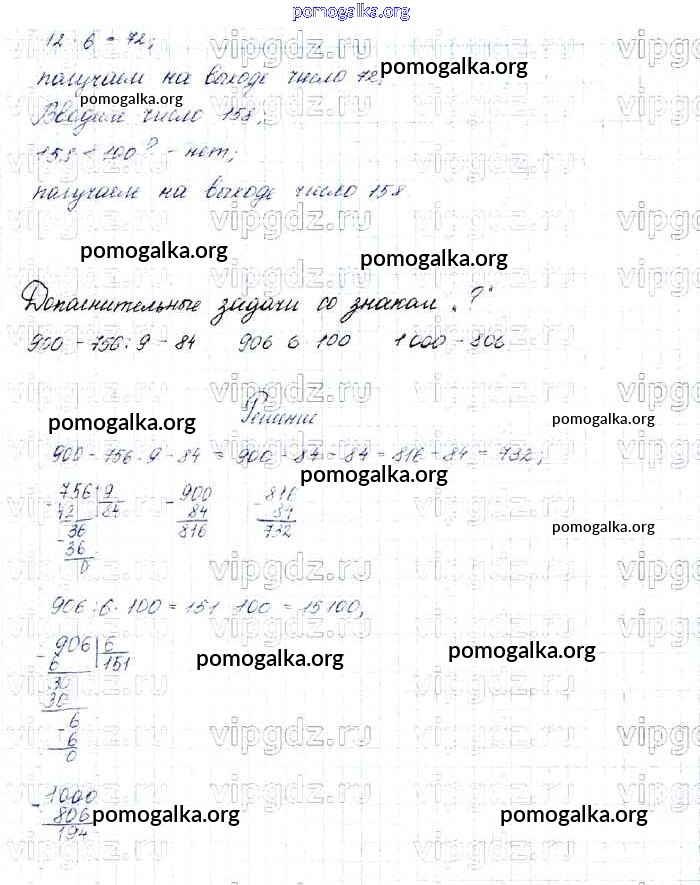 pomogalka.org
12 · 6 = 72;
получаем на выходе число 72;
pomogalka.org
pomogalka.org
Вводим число 158;
158 < 100? - нет;
получаем на выходе число 158.
vipgdz.ru
pomogalka.org
pomogalka.org
Дополнительные задачи со знаком „?"
900 - 756 : 9 - 84 906 6 · 100 1000 - 806
pomogalka.org
Решение
pomogalka.org
900 - 756 : 9 - 84 = 900 - 84 - 84 = 816 - 84 = 732;
pomogalka.org
756 9 - 900 - 816
- 42 84 84 84
36 816 732
- 36
0
pomogalka.org
vipgdz.ru
906 : 6 · 100 = 151 100 = 15100;
- 906 6
6 151
pomogalka.org
pomogalka.org
30
30
- 6
6
0
vipgdz.ru
- 1000
806
194
pomogalka.org
pomogalka.org